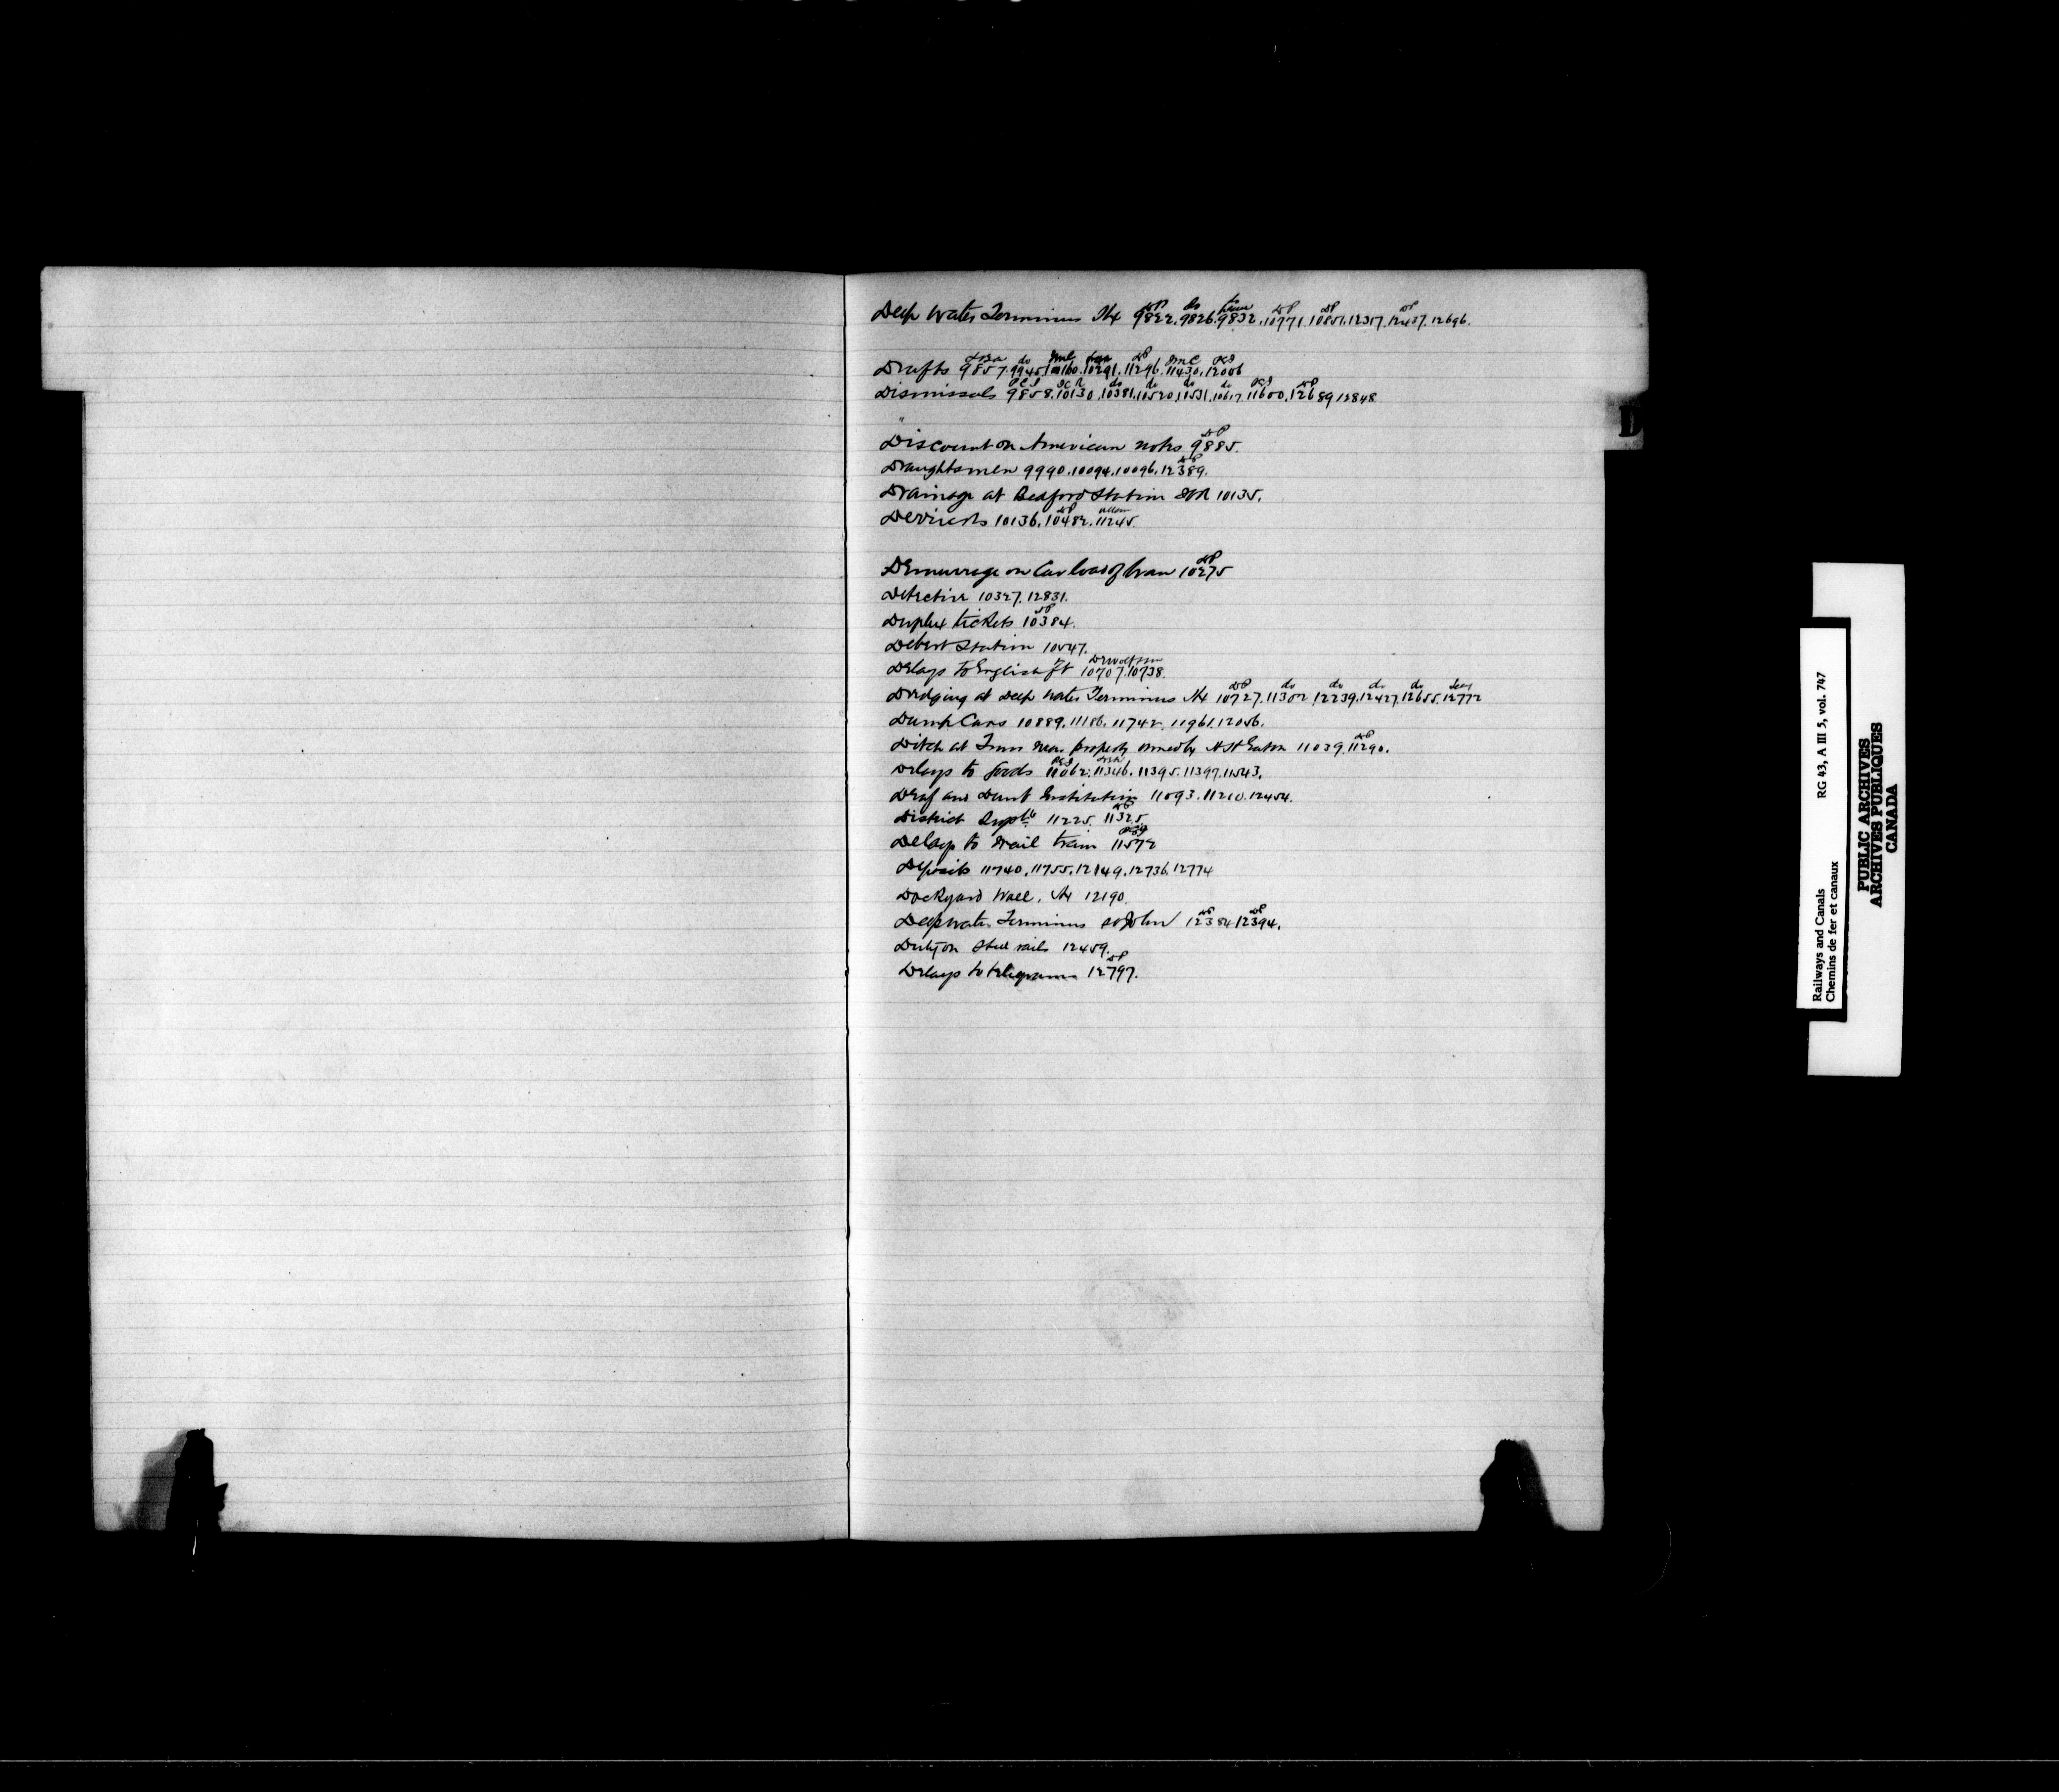 Deep Water Terminus Hx 9822. 9826. 9832. 10771. 10851. 12317. 12437. 12696.
Drafts 9857. 9945. 10160. 10291. 11296. 11430. 12006
Dismissals 9858. 10130. 10381. 10520. 10531. 10617. 11600. 12689 12848
D
Discount on American notes 9885.
Draughtsmen 9990. 10094. 10096. 12389.
Drainage at Bedford Station 10135.
10136. 10482. 11245.
Demurrage on Car load of 10275
Detective 10327. 12831.
Duplex tickets 10384.
Debert Station 10547.
Delays to English ft 10707. 10738.
Dredging at Deep Water Terminus Hx 10727. 11302. 12239. 12427. 12655. 12772
Dump Cars 10889. 11186. 11742. 11961. 12056.
Ditch at Truro near property owned by Eaton 11039. 11290.
Delays to Goods 11062. 11346. 11395. 11397. 11543.
Deaf and Dumb Institution 11093. 11210. 12454.
District Supts 11225. 11325.
Delays to Mail train 11572
Deposits 11740. 11755. 12149. 12736. 12774
Dockyard Wall. Hx 12190.
Deep Water Terminus St John 12384 12394.
Duty on Steel rails 12459.
Delays to telegrams 12797.
Railways and Canals RG 43, A III 5, vol. 747
Chemins de fer et canaux
PUBLIC ARCHIVES
ARCHIVES PUBLIQUES
CANADA